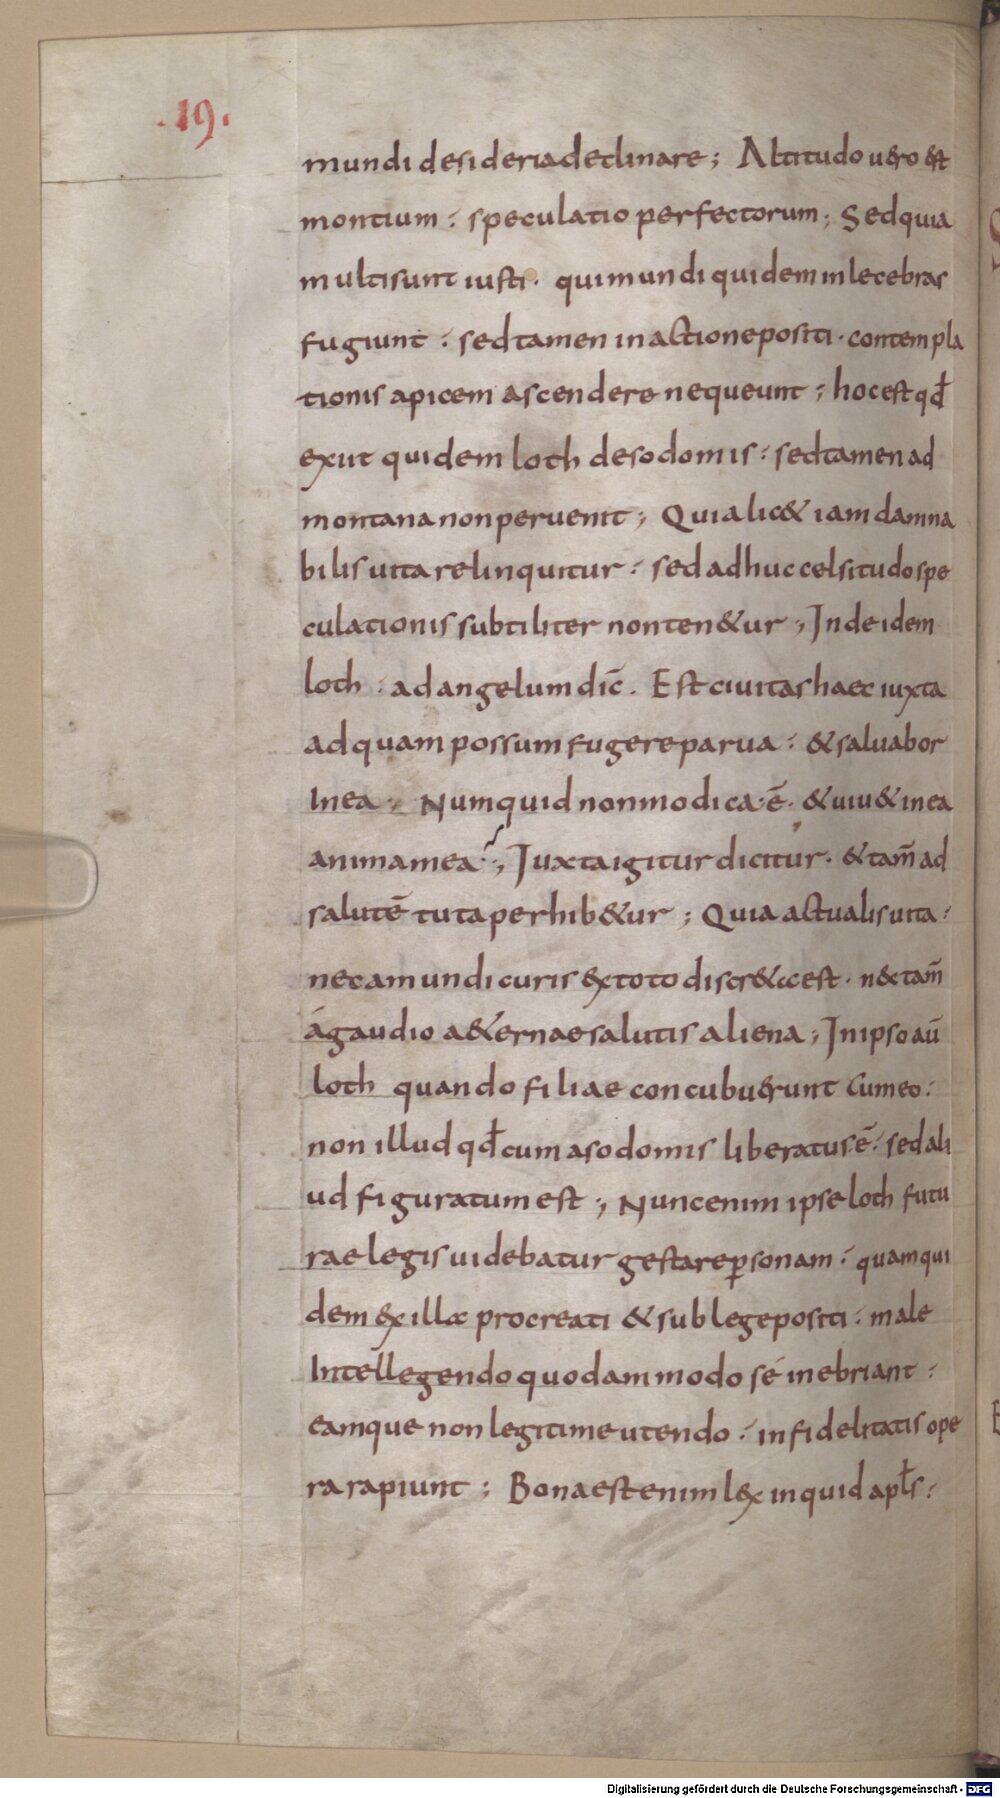 .19.
mundi desideria declinare; Altitudo uero est
montium : speculatio perfectorum; Sed quia
multi sunt iusti · qui mundi quidem inlecebras
fugiunt : sed tamen in actione positi · contempla
tionis apicem ascendere nequeunt ; hoc est qđ
exiit quidem loth de sodomis : sed tamen ad
montana non peruenit ; Quia lic& iam damna
bilis uita relinquitur : sed adhuc celsitudo spe
culationis subtiliter non ten&ur ; Inde idem
loth : ad angelum dic̄ . Est ciuitas haec iuxta
ad quam possum fugere parua : & saluabor
In ea ; Numquid non modica · ē · & uiu& in ea
anima mea ; Iuxta igitur dicitur · & tam̄ ad
salutē tuta perhib&ur ; Quia actualis uita :
nec a mundi curis ex toto discr&a est · nec tam̄
á gaudio a&ernae salutis aliena ; In ipso aū
loth quando filiae concubuerunt cum eo :
non illud qđ cum a sodomis liberatus ē : sed ali
ud figuratum est ; Nunc enim ipse loth futu
rae legis uidebatur gestare ꝑsonam : quam qui
dem ex illa procreati & sub lege positi : male
Intellegendo quodammodo sé inebriant :
eamque non legitime utendo : infidelitatis ope
ra rapiunt ; Bona est enim lex inquid apłs :
Digitalisierung gefördert durch die Deutsche Forschungsgemeinschaft - DFG